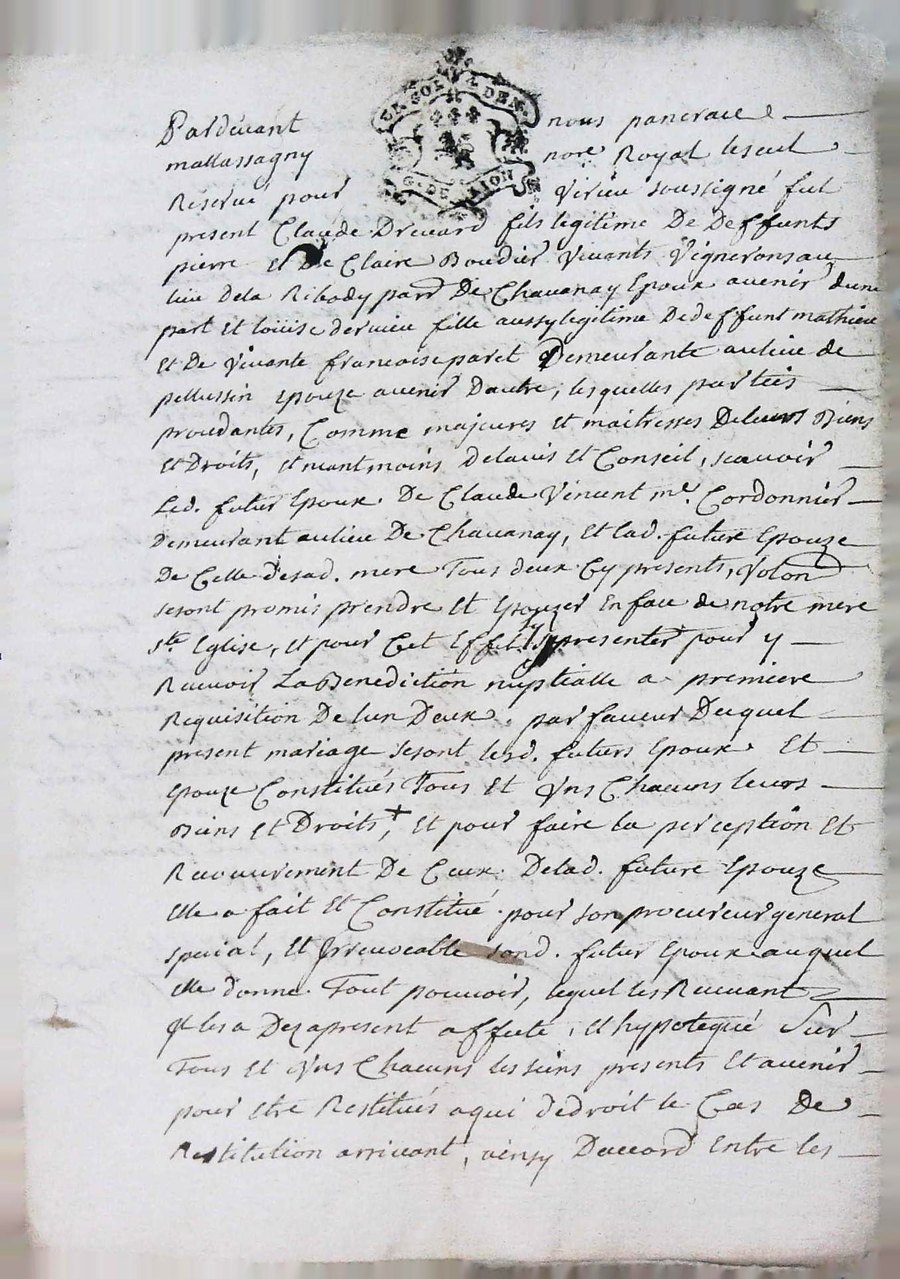 UN SOL 4 DEN
G. DE LYON
Pardevant nous pancrace
mallassagny nore Royal lescul
Reservé pour Virieu soussigné fut
present Claude Drevard fils legitime De Deffunts
pierre Et De Claire Boudier Vivants Vignerons au
lieu dela Ribody parr De Chavanay Epoux avenir dune
part Et louise dervieu fille aussy legitime Dedeffunt mathieu
Et De Vivante francoise paret Demeurante au lieu de
pellussin Epouze avenir Dautre, lesquelles parties
procedantes, Comme majeures Et maitresses Deleurs Biens
Et Droits, Et neantmoins Delavis Et Conseil, scavoir
Led. futur Epoux. De Claude Vincent me. Cordonnier
Demeurant aulieu De Chavanay, Et lad. future Epouze
De Celle Desad. mere Tous deux Cy presents, Volond
sesont promis prendre Et Epouzer En face de notre mere
ste Eglise, Et pour Cet Effet sy presenter pour y
Recevoir La Benediction nuptialle a premiere
Requisition De lun Deux. par faveur Duquel
present mariage sesont lesd. futurs Epoux Et
Epouze Constitués Tous Et Uns Chacuns leurs
Biens Et Droits +, Et pour faire la perception Et
Recouvrement De Ceux Delad. future Epouze
Elle a fait Et Constitué pour son procureur general
special, Et Irrevocable sond. futur Epoux auquel
Elle donne Tout pouvoir, lequel les Recevant
Et les a Dezapresent affecté, Et hypotequé Sur
Tous Et Uns Chacuns les siens presents Et avenir
pour Etre Restitués aqui dedroit le Cas De
Restitution arrivant, ainsy Daccord Entre les